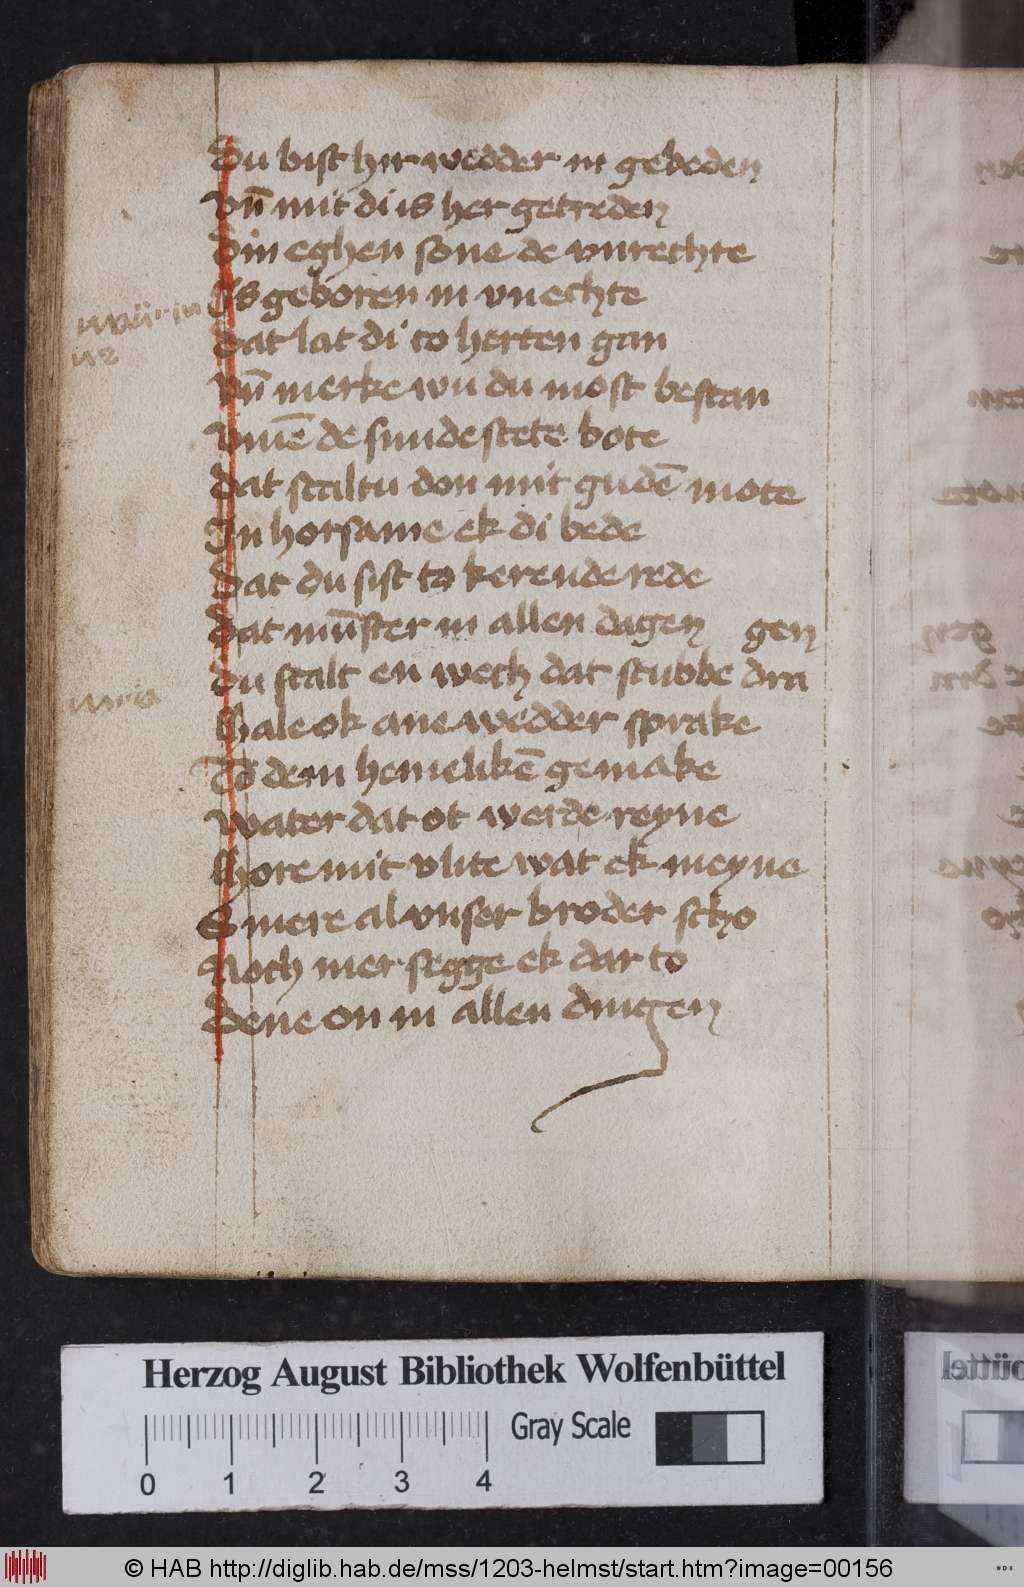 Du bist hir wedder in gebeden
vn̄ mit di is her getreden
Din eghen sone de vnrechte
Is geboren in vnechte
Dat lat di to herten gan
vn̄ merke wu du most bestan
vm̄e de sunde stete bote
Dat scaltu don mit gudē mote
In horsame ek di bede
Dat du sist to kerende rede
Dat mūster in allen dagen gen
Du scalt en wech dat stubbe dra
Hale ok ane wedder sprake
To dem hemelikē gemake
Water dat ot werde reyne
Hore mit vlite wat ek meyne
Smere al vnser broder scho
Noch mer segge ek dar to
Dene on in allen dingen
Herzog August Bibliothek Wolfenbüttel
Gray Scale
0 1 2 3 4
© HAB http://diglib.hab.de/mss/1203-helmst/start.htm?image=00156